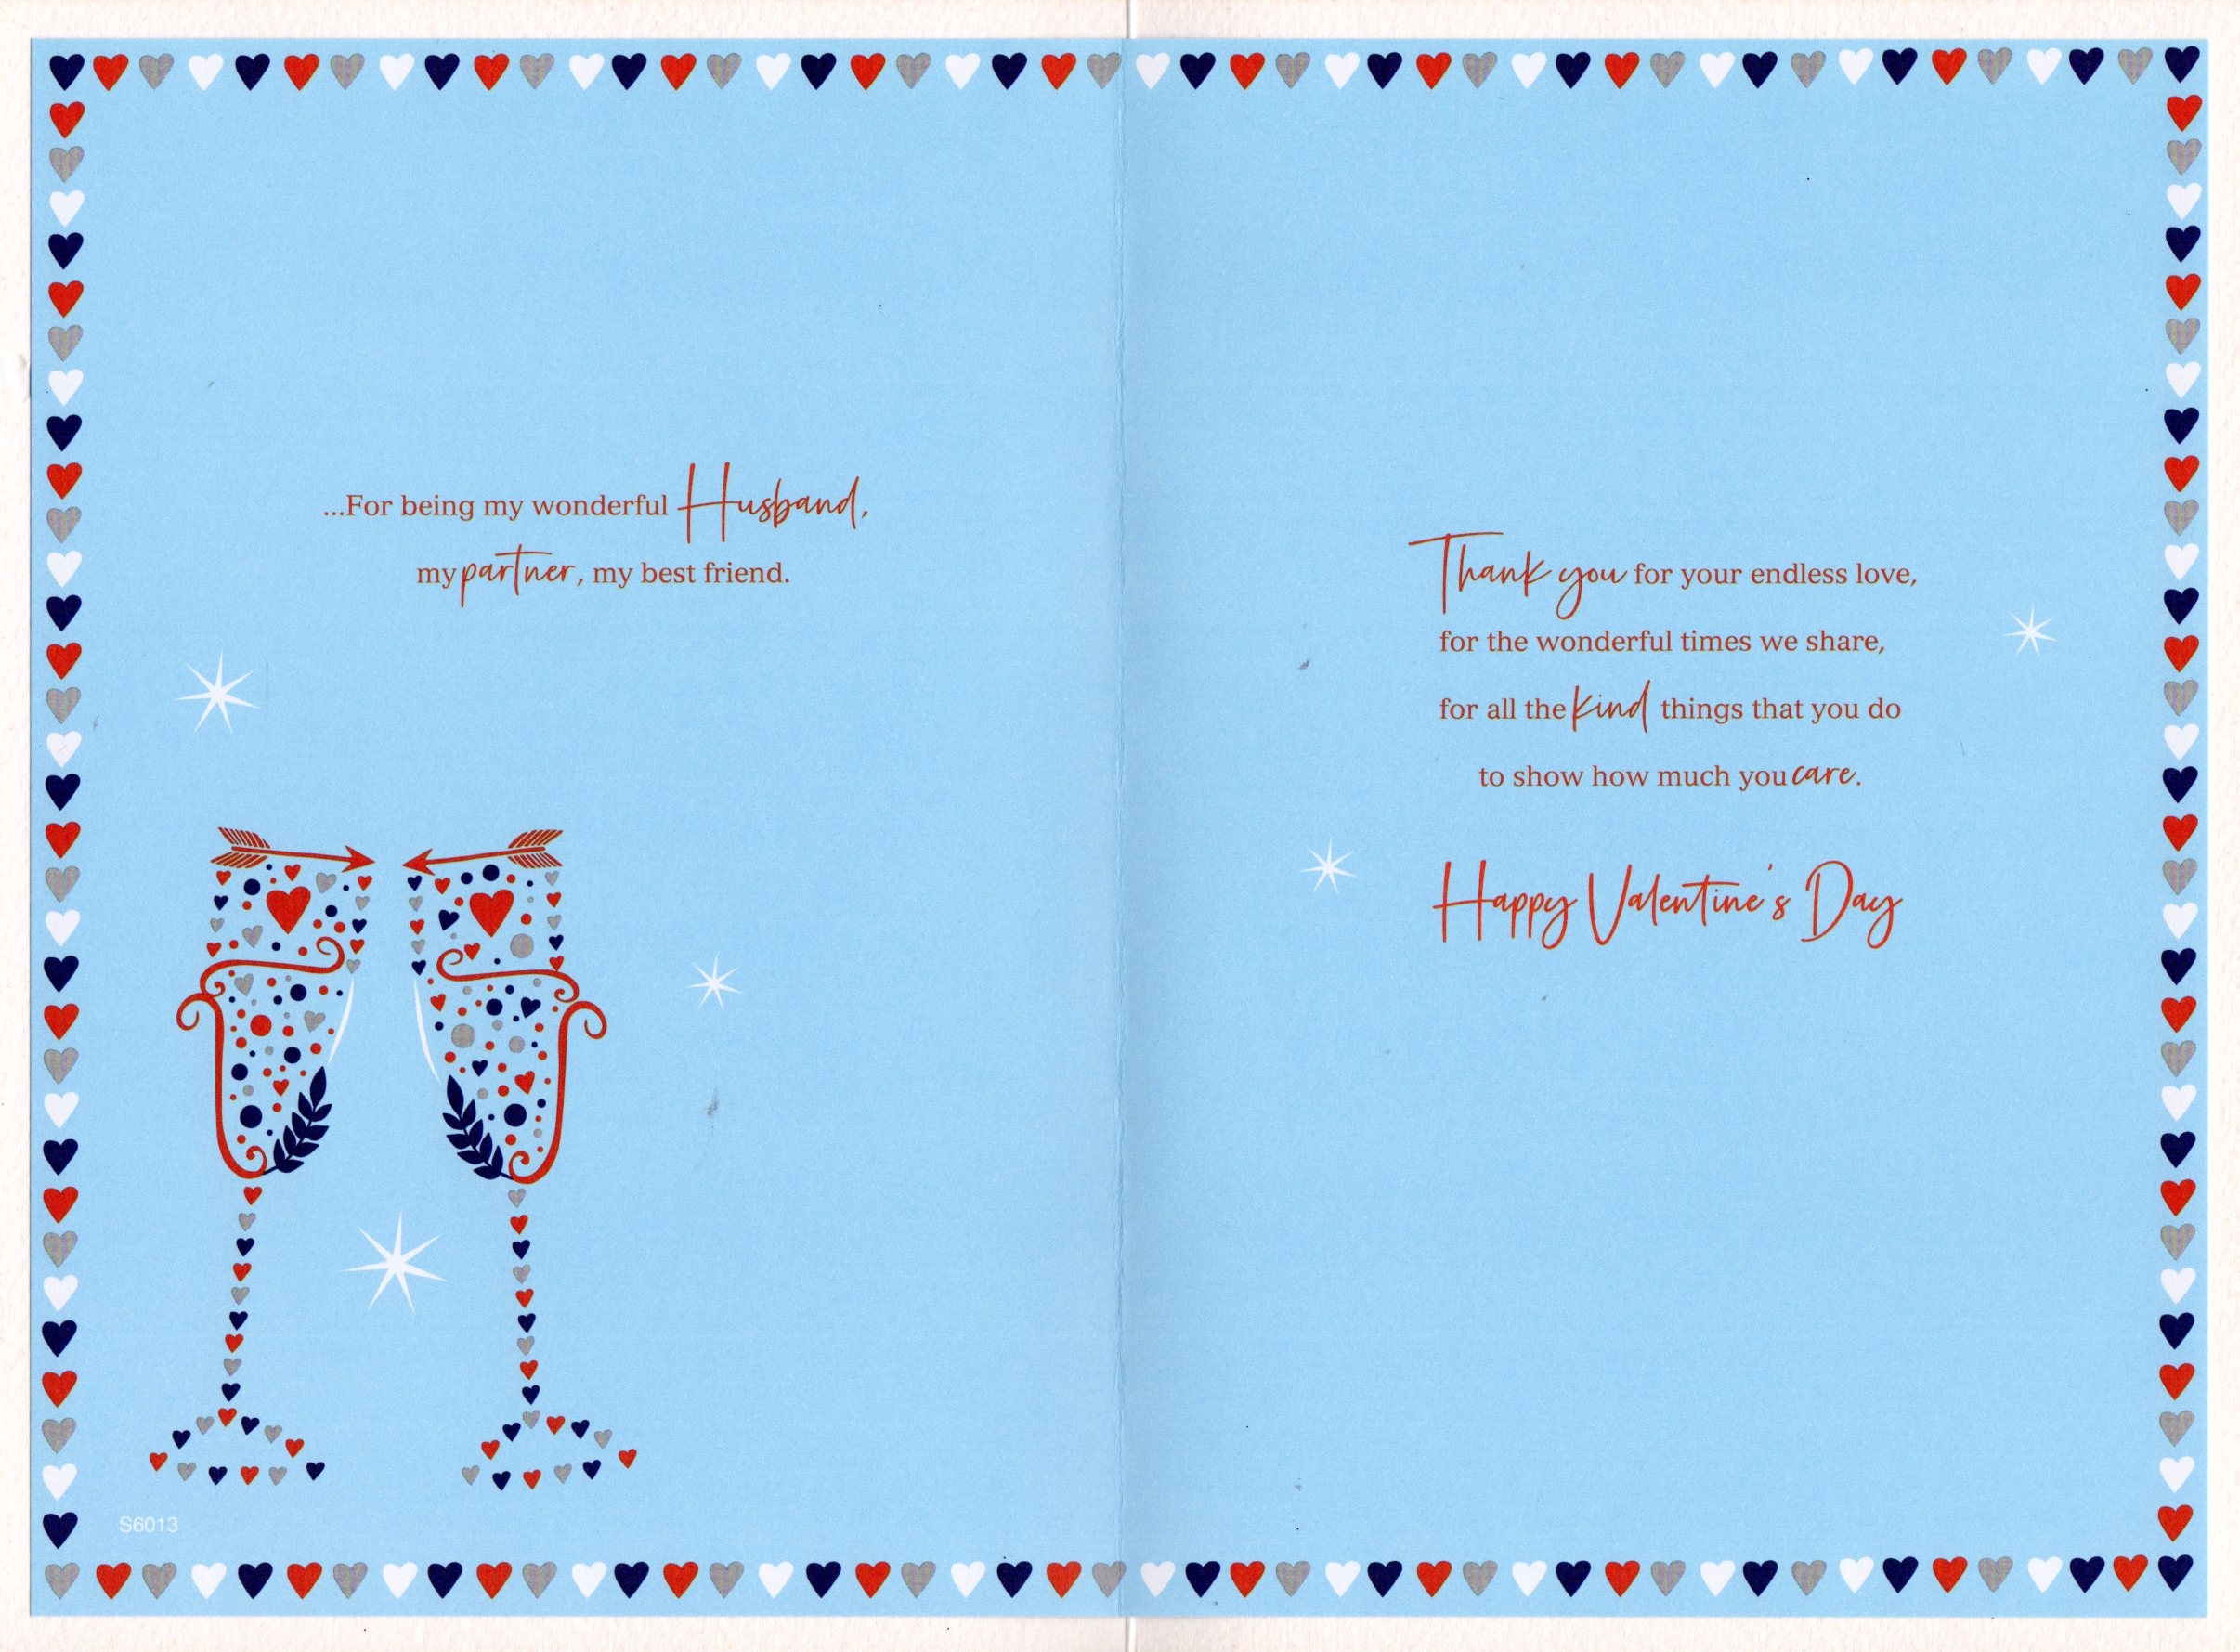 ...For being my wonderful Husband,
my partner, my best friend.
S6013
Thank you for your endless love,
for the wonderful times we share,
for all the kind things that you do
to show how much you care.
Happy Valentine's Day